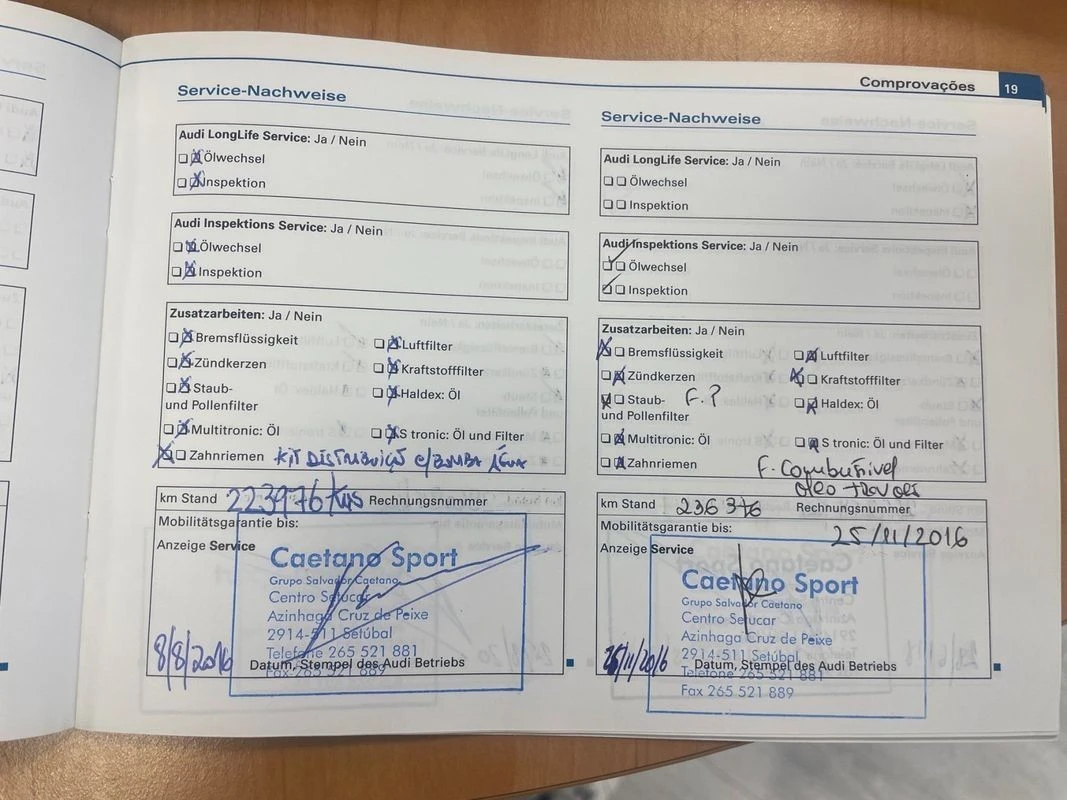 Comprovações 19
Service-Nachweise
Audi LongLife Service: Ja / Nein
Ölwechsel
Inspektion
Audi Inspektions Service: Ja / Nein
Ölwechsel
Inspektion
Zusatzarbeiten: Ja / Nein
Bremsflüssigkeit
Luftfilter
Zündkerzen
Kraftstofffilter
Staub-
und Pollenfilter
Haldex: Öl
Multitronic: Öl
S tronic: Öl und Filter
Zahnriemen KIT DISTRIBUIÇÃO C/BOMBA ÁGUA
km Stand 223976 Kms Rechnungsnummer
Mobilitätsgarantie bis:
Anzeige Service
Caetano Sport
Grupo Salvador Caetano
Centro Setucar
Azinhaga Cruz de Peixe
2914-511 Setúbal
Telefone 265 521 881
Fax 265 521 889
8/8/2016
Datum, Stempel des Audi Betriebs
Service-Nachweise
Audi LongLife Service: Ja / Nein
Ölwechsel
Inspektion
Audi Inspektions Service: Ja / Nein
Ölwechsel
Inspektion
Zusatzarbeiten: Ja / Nein
Bremsflüssigkeit
Luftfilter
Zündkerzen
Kraftstofffilter
Staub- F.P
und Pollenfilter
Haldex: Öl
Multitronic: Öl
S tronic: Öl und Filter
Zahnriemen F. Combustivel
oleo travoes
km Stand 236376 Rechnungsnummer
Mobilitätsgarantie bis: 25/11/2016
Anzeige Service
Caetano Sport
Grupo Salvador Caetano
Centro Setucar
Azinhaga Cruz de Peixe
2914-511 Setúbal
Telefone 265 521 881
Fax 265 521 889
25/11/2016
Datum, Stempel des Audi Betriebs